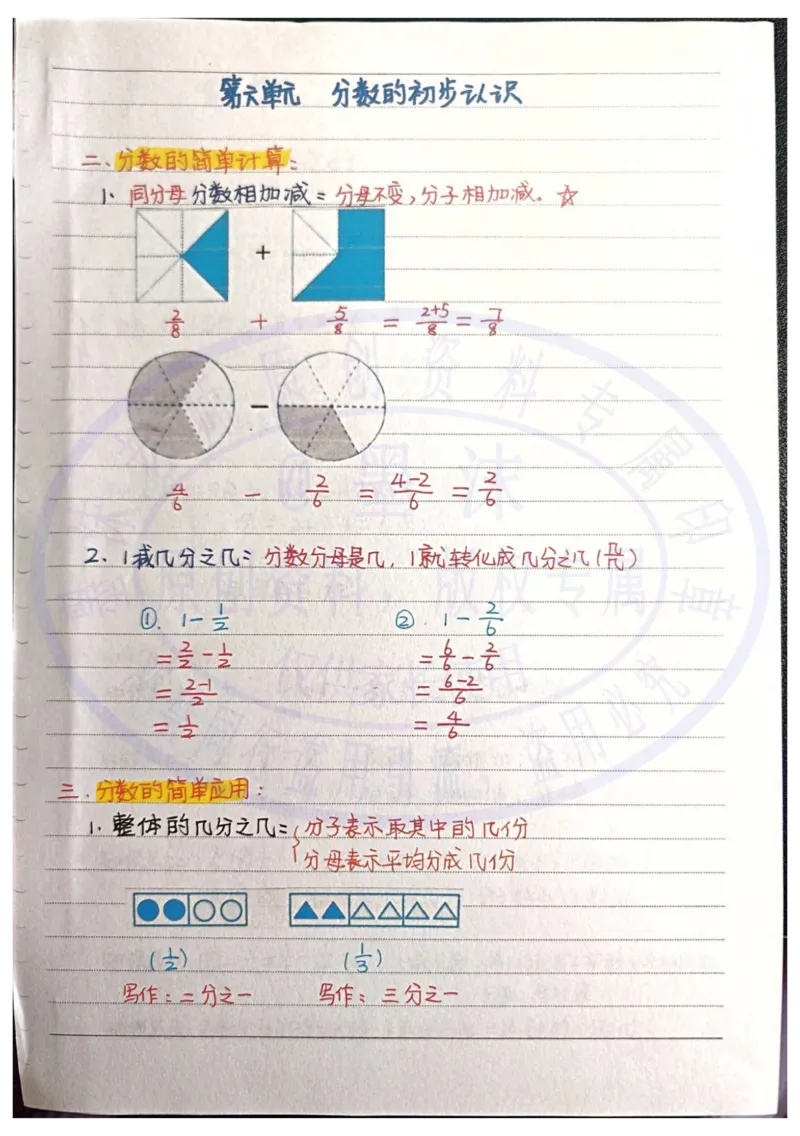 第六单元 分数的初步认识
二、分数的简单计算:
1、同分母分数相加减:分母不变,分子相加减。☆
+
2/8 + 5/8 = 2+5/8 = 7/8
−
4/6 − 2/6 = 4-2/6 = 2/6
2、1减几分之几:分数分母是几,1就转化成几分之几(几/几)
①. 1-1/2 ②. 1-2/6
=2/2-1/2 =6/6-2/6
=2-1/2 =6-2/6
=1/2 =4/6
三.分数的简单应用:
1.整体的几分之几={分子表示取其中的几份
分母表示平均分成几份
(1/2) (1/3)
写作:二分之一 写作:三分之一